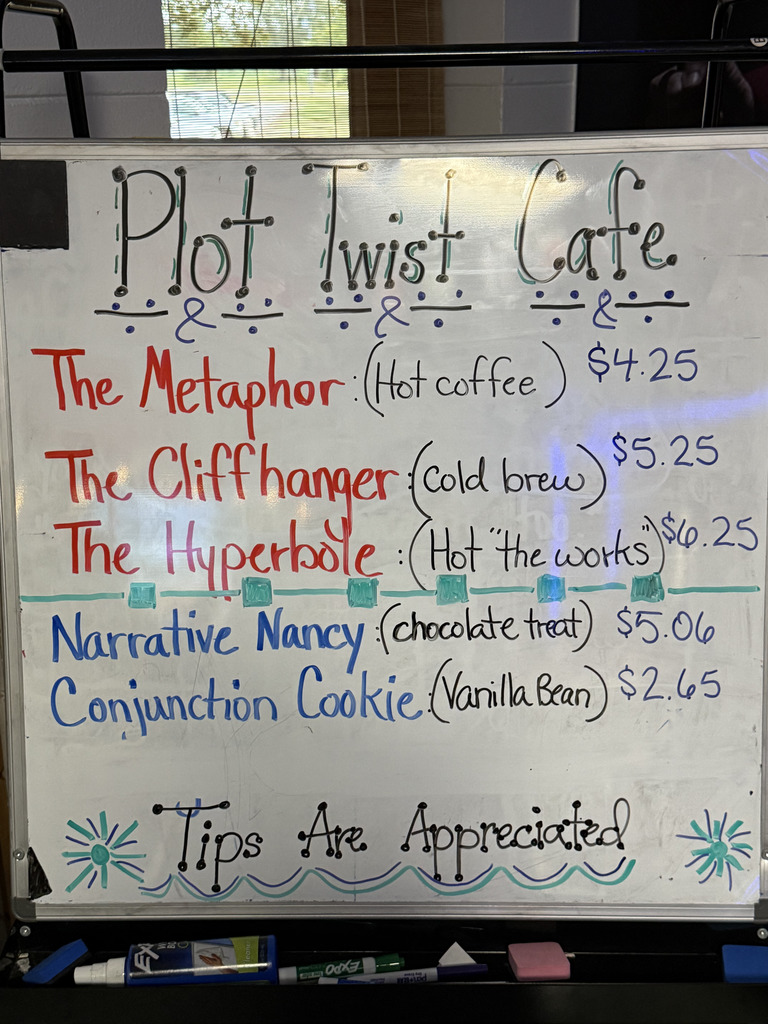 Plot Twist Cafe
& & &
The Metaphor: (Hot coffee) $4.25
The Cliffhanger: (cold brew) $5.25
The Hyperbole: (Hot "the works") $6.25
Narrative Nancy: (chocolate treat) $5.06
Conjunction Cookie: (Vanilla Bean) $2.65
Tips Are Appreciated
EXPO
EXPO